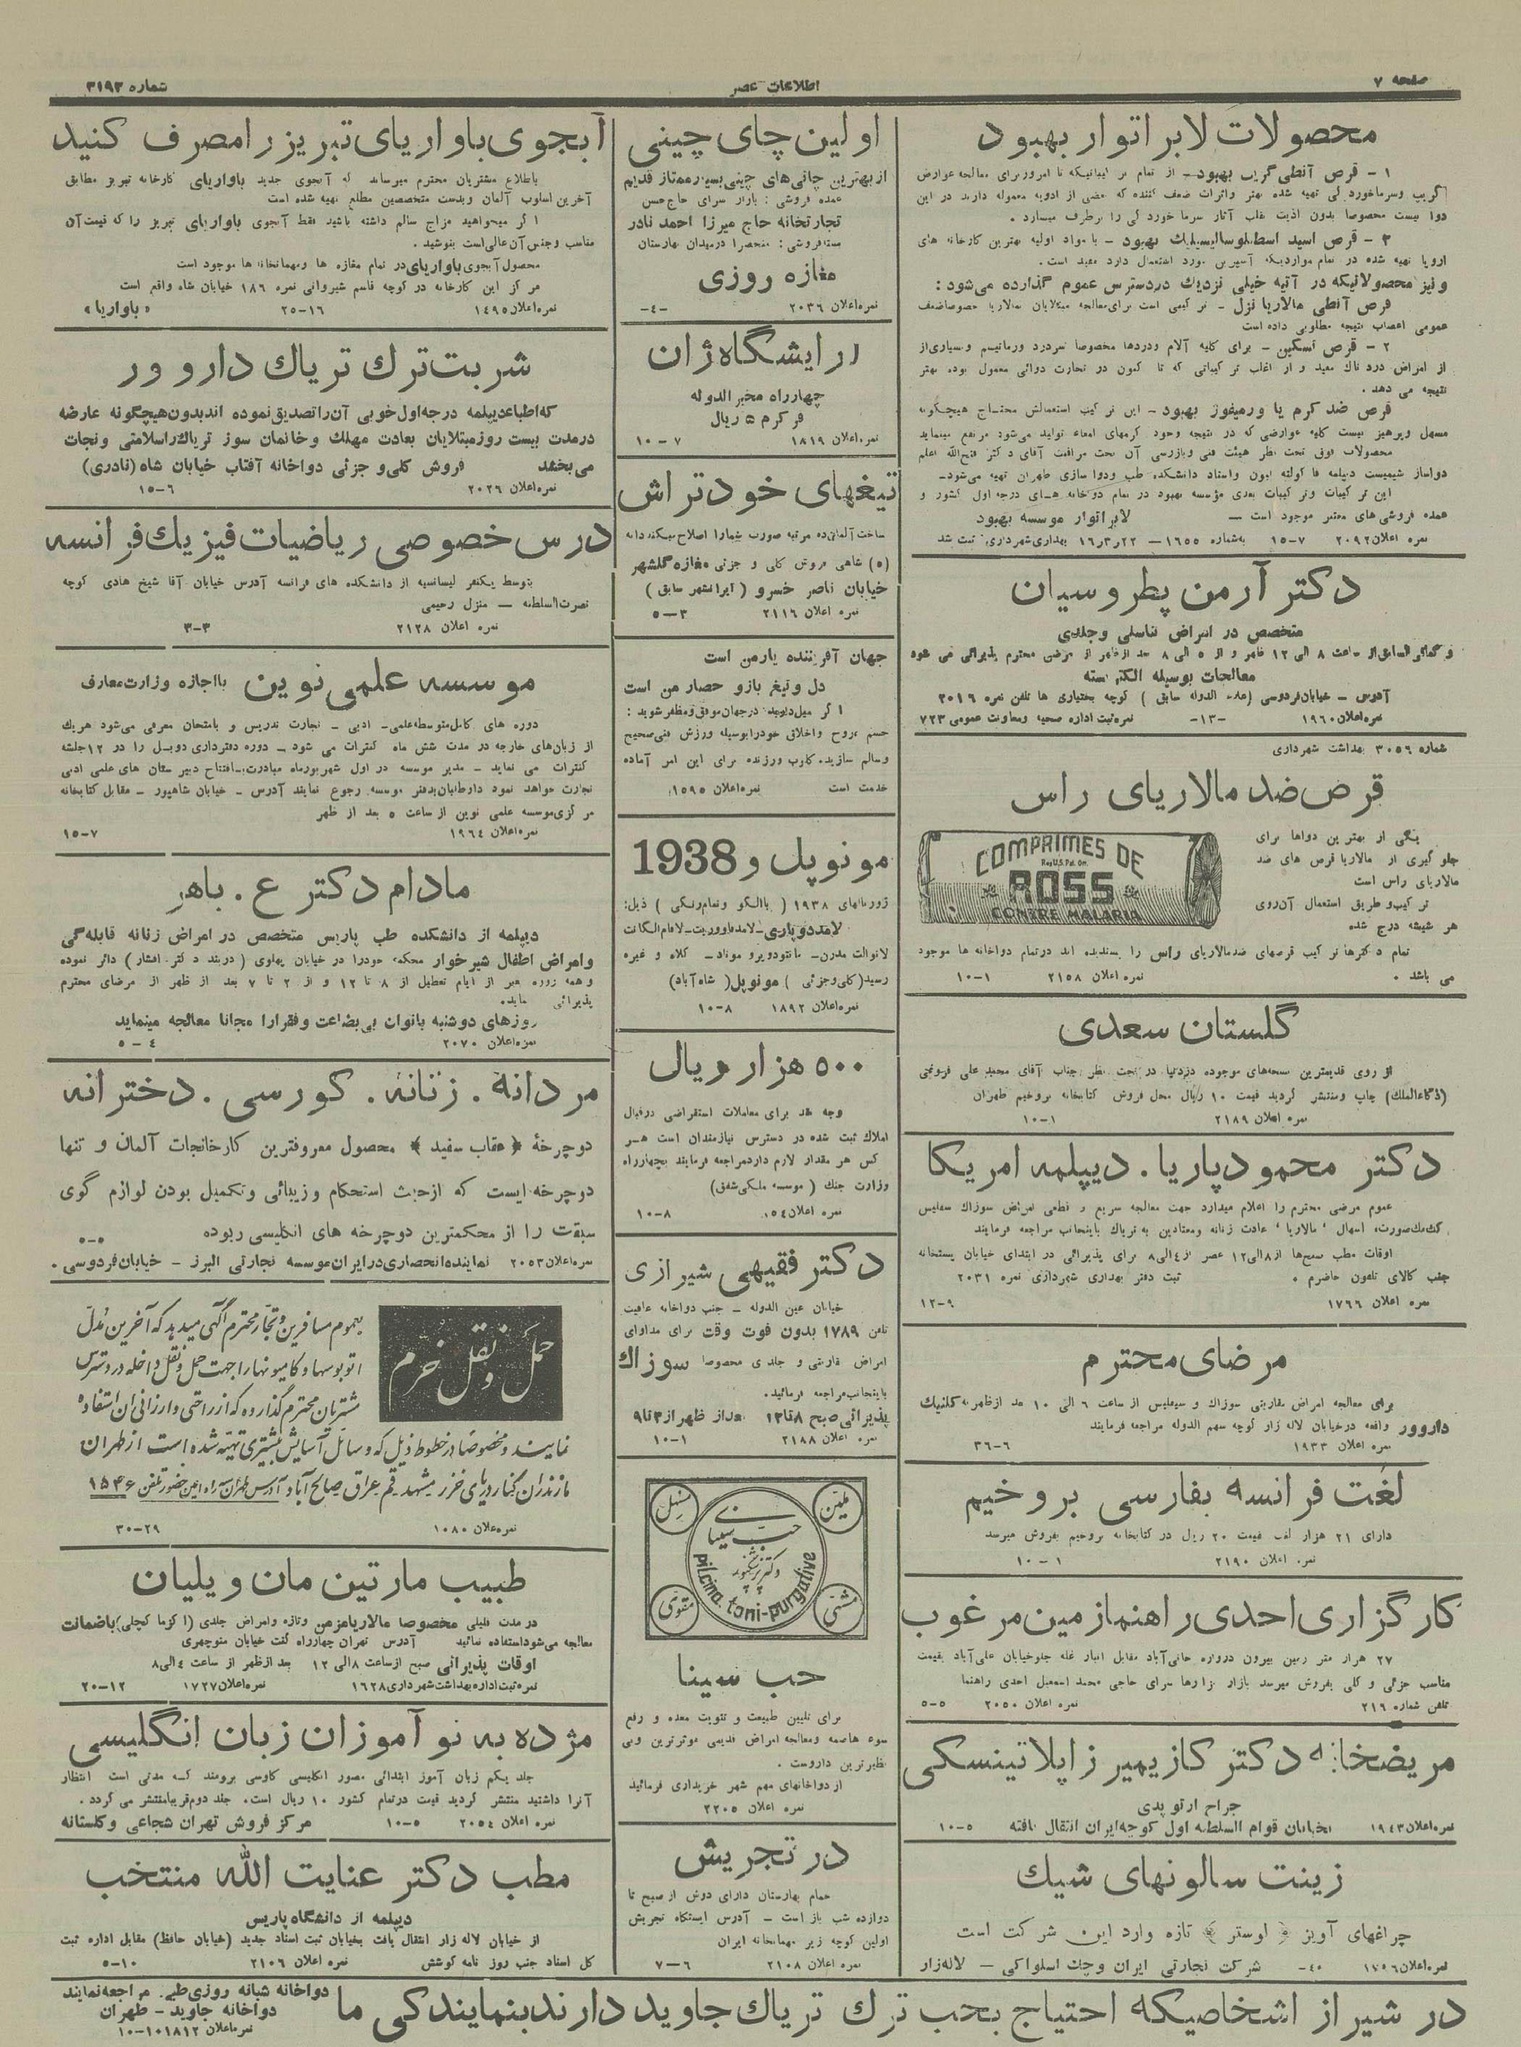 صفحه ۷
اطلاعات عصر
شماره ۳۱۹۳
محصولات لابراتوار بهبود
۱ - قرص آنطی گریپ بهبود - از تمام ترکیباتیکه تا امروز برای معالجه عوارض
گریپ وسرماخوردگی تهیه شده بهتر واثرات ضعف کننده که بعضی از ادویه معموله دارند در این
دوا نیست مخصوصا بدون اذیت قلب آثار سرما خوردگی را برطرف میسازد .
۲ - قرص اسید اسطیلوسالیسیلیک بهبود - با مواد اولیه بهترین کارخانه های
اروپا تهیه شده در تمام مواردیکه آسپرین مورد استعمال دارد مفید است .
و نیز محصولاتیکه در آتیه خیلی نزدیك دردسترس عموم گذارده می‌شود :
قرص آنطی مالاریا نزل - ترکیبی است برای معالجه مبتلایان بمالاریا خصوصاضعف
عمومی اعصاب نتیجه مطلوبی داده است
۲ - قرص تسکین - برای کلیه آلام ودردها مخصوصا سردرد ورماتیسم وبسیاری‌از
از امراض درد ناك مفید و از اغلب ترکیباتی که تا کنون در تجارت دوائی معمول بوده بهتر
نتیجه می دهد .
قرص ضد کرم یا ورمیفوژ بهبود - این ترکیب استعمالش محتاج هیچگونه
مسهل وپرهیز نیست کلیه عوارضی که در نتیجه وجود کرمهای امعاء تولید می‌شود مرتفع مینماید
محصولات فوق تحت نظر هیئت فنی وبازرسی آن تحت مراقبت آقای دکتر فتح‌الله اعلم
دواساز شیمیست دیپلمه فاکولته لیون واستاد دانشکده طب ودوا سازی طهران تهیه می‌شود-
این ترکیبات وترکیبات بعدی مؤسسه بهبود در تمام دوخانه های درجه اول کشور و
عمده فروشی های معتبر موجود است - لابراتوار موسسه بهبود
نمره اعلان۲۰۹۲ ۷-۱۵ به‌شماره ۱۶۵۵- ۱۶ر۳ر۲۲ بهداری‌شهرداری ثبت شد
دکتر آرمن پطروسیان
متخصص در امراض تناسلی وجلدی
وکمافی السابق‌از ساعت ۸ الی ۱۲ ظهر و از ۵ الی ۸ بعد ازظهر از مرضی محترم پذیرائی می شود
معالجات بوسیله الکتریسته
آدرس - خیابان‌فردوسی (علاء الدوله سابق ) کوچه بختیاری ها تلفن نمره ۲۰۱۶
نمره‌اعلان ۱۹۶۰ -۱۳- نمره‌ثبت اداره صحیه ومعاونت عمومی ۷۲۳
شماره ۳۰۵۶ بهداشت شهرداری
قرص ضد مالاریای راس
یکی از بهترین دواها برای
جلوگیری از مالاریا قرص های ضد
مالاریای راس است
ترکیب‌وطریق استعمال آن‌روی
هر شیشه درج شده
COMPRIMES DE
Reg U.S. Pat. On.
ROSS
CONTRE MALARIA
تمام دکترها ترکیب قرصهای ضدمالاریای راس را پسندیده اند درتمام دواخانه ها موجود
می باشد .
نمره اعلان ۲۱۵۸ ۱-۱۰
گلستان سعدی
از روی قدیمترین نسخه‌های موجوده دردنیا در تحت نظر جناب آقای محمد علی فروغی
(ذکاءالملك) چاپ ومنتشر گردید قیمت ۱۰ ریال محل فروش کتابخانه بروخیم طهران
نمره اعلان ۲۱۸۹ ۱-۱۰
دکتر محمود پاریا . دیپلمه امریکا
عموم مرضی محترم را اعلام میدارد جهت معالجه سریع و قطعی امراض سوزاك سفلیس
كك‌مك‌صورت، اسهال ' مالاریا ' عادت زنانه ومعتادین به تریاك باینجانب مراجعه فرمایند
اوقات مطب صبح‌ها از۸الی۱۲ عصر از۴الی۸ برای پذیرائی در ابتدای خیابان پستخانه
جنب کالای تلفون حاضرم . ثبت دفتر بهداری شهرداری نمره ۲۰۳۱
نمره اعلان ۱۷۶۶ ۹-۱۲
مرضای محترم
برای معالجه امراض مقاربتی سوزاك و سیفلیس از ساعت ۶ الی ۱۰ بعد ازظهر به کلنیك
داروور واقعه درخیابان لاله زار کوچه سهم الدوله مراجعه فرمایند
نمره اعلان ۱۹۳۳ ۶-۳۶
لغت فرانسه بفارسی بروخیم
دارای ۲۱ هزار لغت قیمت ۲۰ ریال در کتابخانه بروخیم بفروش میرسد
نمره اعلان ۲۱۹۰ ۱-۱۰
کارگزاری احدی راهنمازمین مرغوب
۲۷ هزار متر زمین بیرون دروازه خانی‌آباد مقابل انبار غله جلوخیابان علی‌آباد بقیمت
مناسب جزئی و کلی بفروش میرسد بازار بزازها سرای حاجی محمد اسمعیل احدی راهنما
تلفن شماره ۲۱۶ نمره اعلان ۲۰۵۰ ۵-۵
مریضخانه دکتر کازیمیر زاپلاتینسکی
جراح ارتوپدی
نمره‌اعلان۱۹۴۳ بخیابان قوام السلطنه اول کوچه‌ایران انتقال یافته ۵-۱۰
زینت سالونهای شیك
چراغهای آویز ﴿ لوستر ﴾ تازه وارد این شرکت است
نمره‌اعلان۱۷۵۶ ۴۰- شرکت تجارتی ایران وچك اسلواکی - لاله‌زار
اولین چای چینی
از بهترین چائی‌های چینی بسیار ممتاز قدیم
عمده فروشی : بازار سرای حاج‌حسن
تجارتخانه حاج میرزا احمد نادر
بسته‌فروشی : منحصرا درمیدان بهارستان
مغازه روزی
نمره‌اعلان ۲۰۳۶ -۴-
آرایشگاه ژان
چهارراه مخبرالدوله
فرکرم ۵ ریال
نمره‌اعلان ۱۸۱۹ ۷-۱۰
تیغهای خودتراش
ساخت آلمانی‌ده مرتبه صورت شمارا اصلاح میکنددانه
(۵) شاهی فروش کلی و جزئی مغازه گلشهر
خیابان ناصر خسرو ( ایرانشهر سابق )
نمره اعلان ۲۱۱۶ ۳-۵
جهان آفریننده یارمن است
دل وتیغ بازو حصار من است
اگر میل دارید درجهان‌موفق ومظفر شوید :
جسم وروح واخلاق خودرابوسیله ورزش فنی‌صحیح
وسالم سازید. کلوب ورزنده برای این امر آماده
خدمت است نمره‌اعلان ۱۵۹۵
مونوپل و 1938
ژورنالهای ۱۹۳۸ ( باالگو وتمام‌رنگی ) ذیل:
لامددوپاری-لامدفاووریت-لافام‌الگانت
لانوالت مدرن- مانتودیرو موناد- کلاه و غیره
رسید(کلی‌وجزئی ) مونوپل( شاه‌آباد)
نمره‌اعلان ۱۸۹۲ ۸-۱۰
۵۰۰ هزار ریال
وجه نقد برای معاملات استقراضی درقبال
املاك ثبت شده در دسترس نیازمندان است هر
کس هر مقدار لازم داردمراجعه فرمایند بچهارراه
وزارت جنك ( موسسه ملکی‌شفق)
نمره اعلان ۸-۱۰
دکتر فقیهی شیرازی
خیابان عین الدوله - جنب دواخانه عافیت
تلفن ۱۷۸۹ بدون فوت وقت برای مداوای
امراض مقاربتی و جلدی مخصوصا سوزاك
باینجانب‌مراجعه فرمائید.
پذیرائی صبح ۸تا۱۲ بعداز ظهراز۳تا۹
نمره اعلان ۲۱۸۸ ۱-۱۰
ملین
مسهل
حب سینای
دکتر پزشکپور
pilcina. toni-purgative
مشتهی
مقوی
حب سینا
برای تلیین طبیعت و تقویت معده و رفع
سوء هاضمه ومعالجه امراض قدیمی موثرترین وبی
نظیرترین داروست .
از دواخانهای مهم شهر خریداری فرمائید
نمره اعلان ۲۲۰۵
در تجریش
حمام بهارستان دارای دوش از صبح تا
دوازده شب باز است - آدرس ایستگاه تجریش
اولین کوچه زیر مهمانخانه ایران
نمره اعلان ۲۱۰۸ ۶-۷
آبجوی باواریای تبریز را مصرف کنید
باطلاع مشتریان محترم میرساند که آبجوی جدید باواریای کارخانه تبریز مطابق
آخرین اسلوب آلمان وبدست متخصصین مطلع تهیه شده است
اگر میخواهید مزاج سالم داشته باشید فقط آبجوی باواریای تبریز را که قیمت آن
مناسب وجنس آن عالی‌است بنوشید .
محصول آبجوی باواریای در تمام مغازه ها ومهمانخانه ها موجود است
مرکز این کارخانه در کوچه قاسم شیروانی نمره ۱۸۶ خیابان شاه واقع است
نمره‌اعلان ۱۴۹۵ ۱۶-۲۵ «باواریا»
شربت ترك تریاك داروور
که‌اطباءدیپلمه درجه‌اول‌خوبی آن‌راتصدیق‌نموده اندبدون‌هیچگونه عارضه
درمدت بیست روزمبتلایان بعادت مهلك وخانمان سوز تریاك‌راسلامتی ونجات
می‌بخشد فروش کلی‌و جزئی دواخانه آفتاب خیابان شاه (نادری)
نمره‌اعلان ۲۰۲۶ ۶-۱۵
درس خصوصی ریاضیات فیزیك فرانسه
بتوسط یکنفر لیسانسیه از دانشکده های فرانسه آدرس خیابان آقا شیخ هادی کوچه
نصرت‌السلطنه - منزل رحیمی
نمره اعلان ۲۱۲۸ ۳-۳
موسسه علمی نوین بااجازه وزارت‌معارف
دوره های کامل‌متوسطه‌علمی- ادبی - تجارت تدریس و بامتحان معرفی می‌شود هریك
از زبان‌های خارجه در مدت شش ماه کنترات می شود - دوره دفترداری دوبل را در ۱۲جلسه
کنترات می نماید - مدیر موسسه در اول شهریورماه مبادرت‌بافتتاح دبیرستان های‌علمی ادبی
تجارت خواهد نمود داوطلبان‌بدفتر موسسه رجوع نمایند آدرس - خیابان شاهپور - مقابل کتابخانه
مرکزی‌موسسه علمی نوین ازساعت ۵ بعد از ظهر
نمره‌اعلان ۱۹۶۴ ۷-۱۵
مادام دکتر ع . باهر
دیپلمه از دانشکده طب پاریس متخصص در امراض زنانه قابله‌گی
وامراض اطفال شیر خوار محکمه خودرا در خیابان پهلوی (دربند دکتر افشار) دائر نموده
وهمه روزه بغیر از ایام تعطیل از ۸ تا ۱۲ و از ۲ تا ۷ بعد از ظهر از مرضای محترم
پذیرائی مینماید.
روزهای دوشنبه بانوان بی‌بضاعت وفقرارا مجانا معالجه مینماید
نمره‌اعلان ۲۰۷۰ ۴-۵
مردانه . زنانه . کورسی . دخترانه
دوچرخهٔ ﴿ عقاب سفید ﴾ محصول معروفترین کارخانجات آلمان و تنها
دوچرخه‌ایست که ازحیث استحکام وزیبائی وتکمیل بودن لوازم گوی
سبقت را از محکمترین دوچرخه های انگلیسی ربوده ۵-۵
نمره‌اعلان۲۰۵۳ نماینده‌انحصاری‌درایران‌موسسه تجارتی البرز - خیابان‌فردوسی .
حمل و نقل خرم
بعموم مسافرین و تجار محترم آگهی میدهد که آخرین مدل
اتوبوسها و کامیونها را جهت حمل و نقل داخله در دسترس
مشتریان محترم گذارده که از راحتی و ارزانی آن استفاده
نمایند و مخصوصا در خطوط ذیل که وسائل آسایش بیشتری تهیه شده است از طهران
مازندران کنار دریای خزر مشهد قم عراق صالح آباد آدرس طهران سه راه امین حضور تلفن ۱۵۴۶
نمره‌علان ۱۰۸۰ ۲۹-۳۰
طبیب مارتین مانویلیان
در مدت قلیلی مخصوصا مالاریامزمن وتازه وامراض جلدی (اکزما کچلی) باضمانت
معالجه می‌شوداستفاده نمائید آدرس تهران چهارراه کنت خیابان منوچهری
اوقات پذیرائی صبح ازساعت ۸الی ۱۲ بعد ازظهر از ساعت ۴الی۸
نمره‌ثبت اداره‌بهداشت‌شهرداری۱۶۲۸ نمره‌اعلان۱۷۲۷ ۱۲-۲۰
مژده به نوآموزان زبان انگلیسی
جلد یکم زبان آموز ابتدائی مصور انگلیسی کاوسی برومند که مدتی است انتظار
آنرا داشتید منتشر گردید قیمت درتمام کشور ۱۰ ریال است. جلد دوم‌قریبامنتشر می گردد .
نمره اعلان ۲۰۵۴ ۵-۱۰ مرکز فروش تهران شجاعی وگلستانه
مطب دکتر عنایت الله منتخب
دیپلمه از دانشگاه پاریس
از خیابان لاله زار انتقال یافت بخیابان ثبت اسناد جدید (خیابان حافظ) مقابل اداره ثبت
کل اسناد جنب روز نامه کوشش نمره اعلان ۲۱۰۶ ۱۰-۵
در شیراز اشخاصیکه احتیاج بحب ترك تریاك جاوید دارند بنمایندگی ما
دواخانه شبانه روزی‌طبی مراجعه‌نمایند
دواخانه جاوید - طهران
نمره‌اعلان ۱۸۱۲-۱۰-۱۰